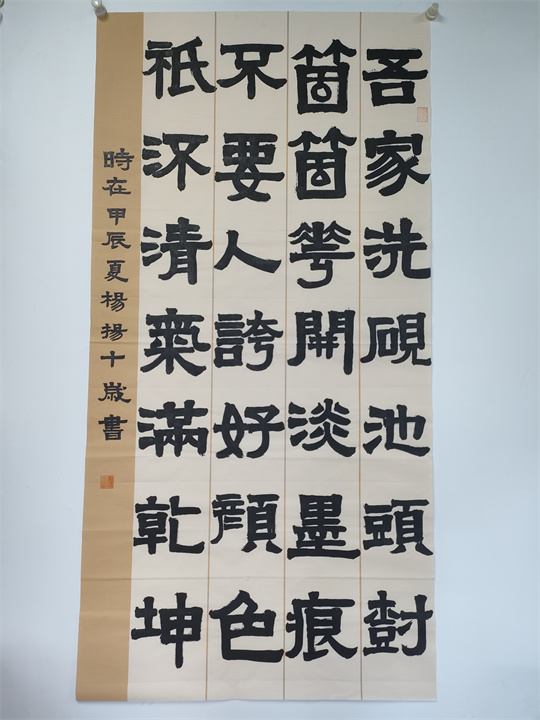 吾家洗硯池頭尌
箇箇荂開淡墨痕
不要人誇好顔色
祇清氣滿乾坤
時在甲辰夏楊揚十歲書